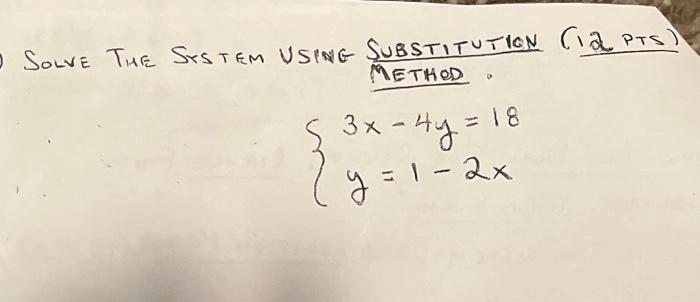 ) SOLVE THE SYSTEM USING SUBSTITUTION (12 PTS)
METHOD.
3x - 4y = 18
y = 1 - 2x